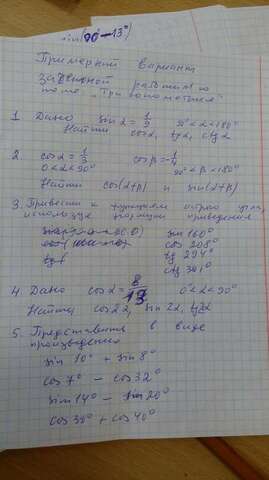 sin(90°-13°)
Примерный вариант
зачетной работы по
теме „Тригонометрия"
1. Дано sinα = 1/2 90°<α<180°
Найти cosα, tgα, ctgα
2. cosα = 1/3 cosβ = 1/4
0<α<90° 90°<β<180°
Найти cos(α+β) и sin(α+β)
3. Привести к функциям острого угла,
используя формулы приведения
sin 160°
cos 208°
tg 294°
ctg 301°
4. Дано cosα = 8/13 0°<α<90°
Найти cos2α, sin2α, tg2α
5. Представить в виде
произведения
sin 10° + sin 8°
cos 7° - cos 32°
sin 14° - sin 20°
cos 38° + cos 40°